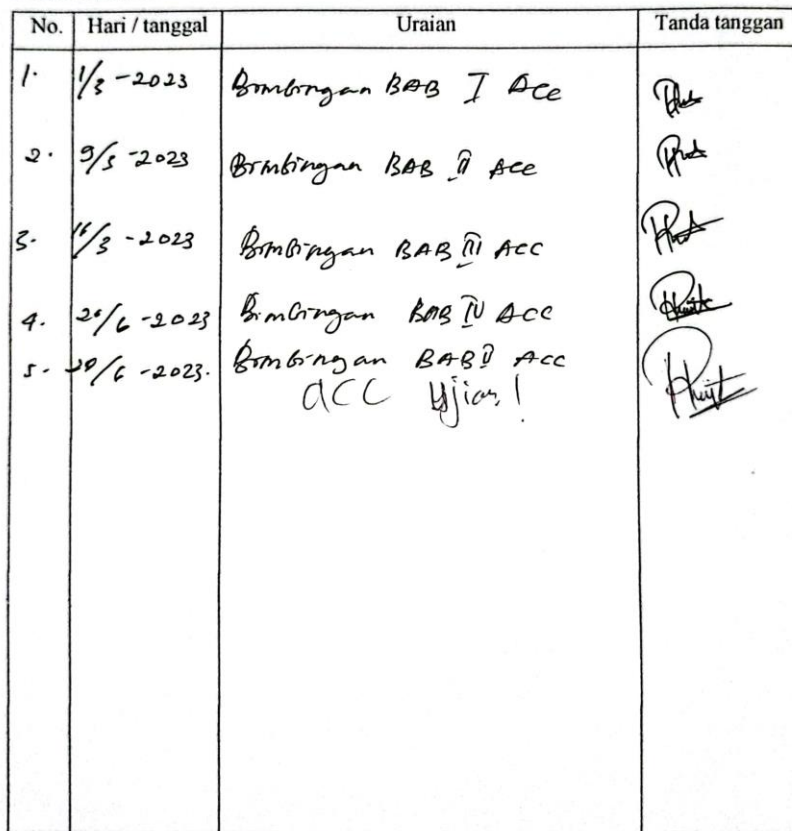 No. Hari / tanggal Uraian Tanda tanggan
1. 1/3 -2023 Bimbingan BAB I Acc
2. 9/3 -2023 Bimbingan BAB II Acc
3. 16/3 -2023 Bimbingan BAB III Acc
4. 26/6 -2023 Bimbingan BAB IV Acc
5. /6 -2023. Bimbingan BAB Acc
acc Ujian!